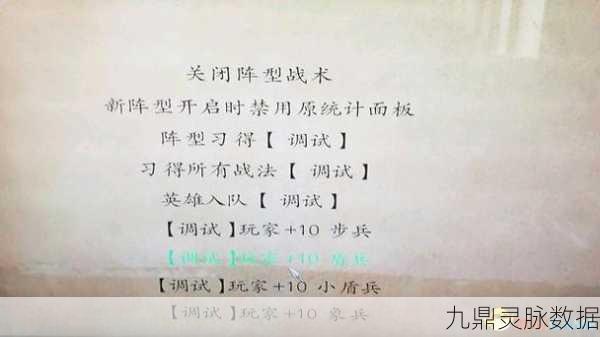 关闭阵型战术
新阵型开启时禁用原统计面板
阵型习得【 调试 】
习得所有战法【 调试 】
英雄入队【 调试 】
【调试】玩家+10 步兵
【调试】玩家+10 盾兵
【调试】玩家+10 小盾兵
【调试】玩家+10 象兵
九鼎灵脉数据